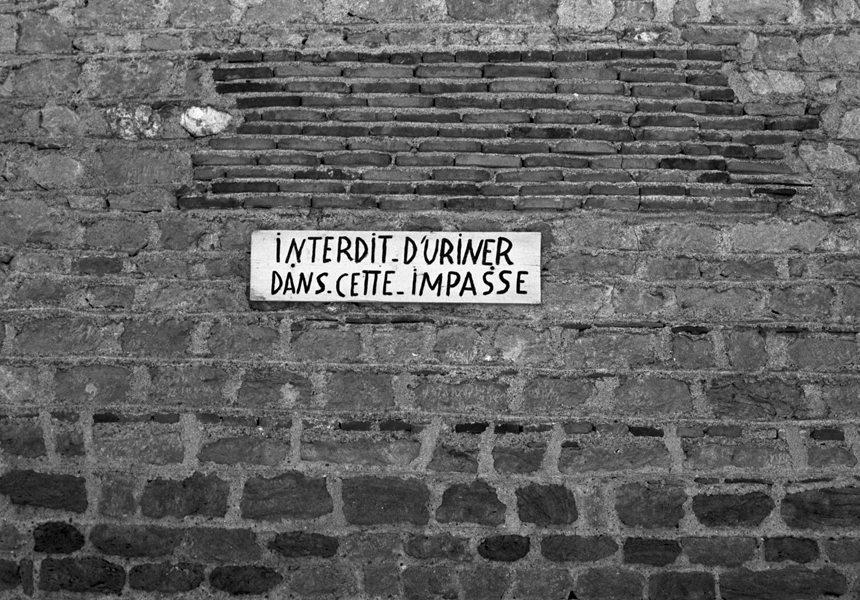 INTERDIT_D'URINER
DANS_CETTE_IMPASSE